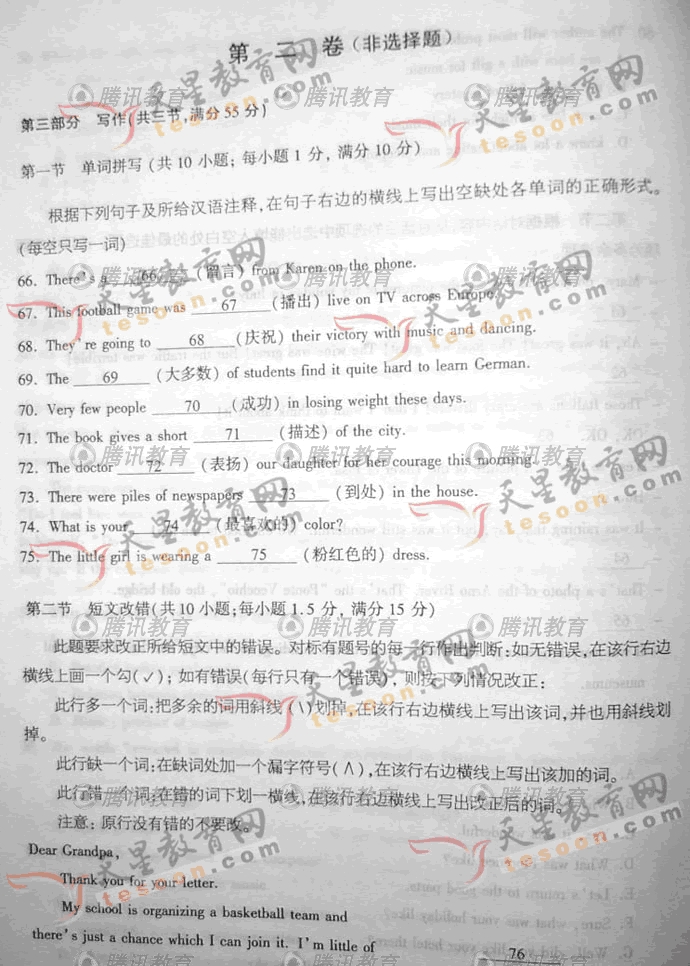 第二卷(非选择题)
第三部分 写作(共三节,满分55分)
第一节 单词拼写(共10小题;每小题1分,满分10分)
根据下列句子及所给汉语注释,在句子右边的横线上写出空缺处各单词的正确形式。
(每空只写一词)
66. There's a 66 (留言) from Karen on the phone.
67. This football game was 67 (播出) live on TV across Europe.
68. They're going to 68 (庆祝) their victory with music and dancing.
69. The 69 (大多数) of students find it quite hard to learn German.
70. Very few people 70 (成功) in losing weight these days.
71. The book gives a short 71 (描述) of the city.
72. The doctor 72 (表扬) our daughter for her courage this morning.
73. There were piles of newspapers 73 (到处) in the house.
74. What is your 74 (最喜欢的) color?
75. The little girl is wearing a 75 (粉红色的) dress.
第二节 短文改错(共10小题;每小题1.5分,满分15分)
此题要求改正所给短文中的错误。对标有题号的每一行作出判断:如无错误,在该行右边
横线上画一个勾(✓);如有错误(每行只有一个错误),则按下列情况改正:
此行多一个词:把多余的词用斜线(\)划掉,在该行右边横线上写出该词,并也用斜线划
掉。
此行缺一个词:在缺词处加一个漏字符号(∧),在该行右边横线上写出该加的词。
此行错一个词:在错的词下划一横线,在该行右边横线上写出改正后的词。
注意:原行没有错的不要改。
Dear Grandpa,
Thank you for your letter.
My school is organizing a basketball team and
there's just a chance which I can join it. I'm little of 76
腾讯教育
天星教育网
tesoon.com